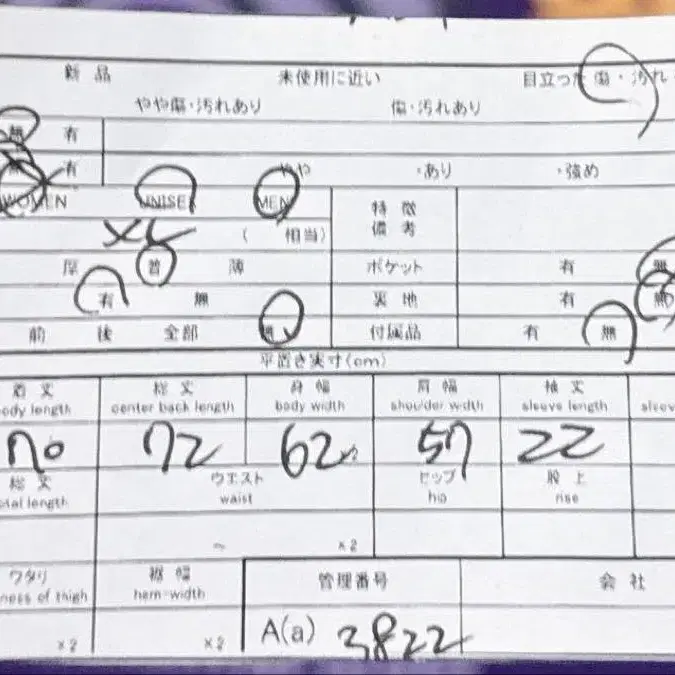 新品 未使用に近い 目立った傷・汚れ
やや傷・汚れあり 傷・汚れあり
無 有
有 やや ・あり ・強め
WOMEN UNISEX MEN 特徴
XL ( 相当) 備考
厚 普 薄 ポケット 有 無
有 無 裏地 有 無
前 後 全部 無 付属品 有 無
平置き実寸(cm)
着丈 総丈 身幅 肩幅 袖丈
body length center back length body width shoulder width sleeve length sleev
70 72 62 57 22
総丈 ウエスト ヒップ 股上
total length waist hip rise
~ ×2
ワタリ 裾幅 管理番号 会社
ness of thigh hem width
×2 ×2 A(a) 3822